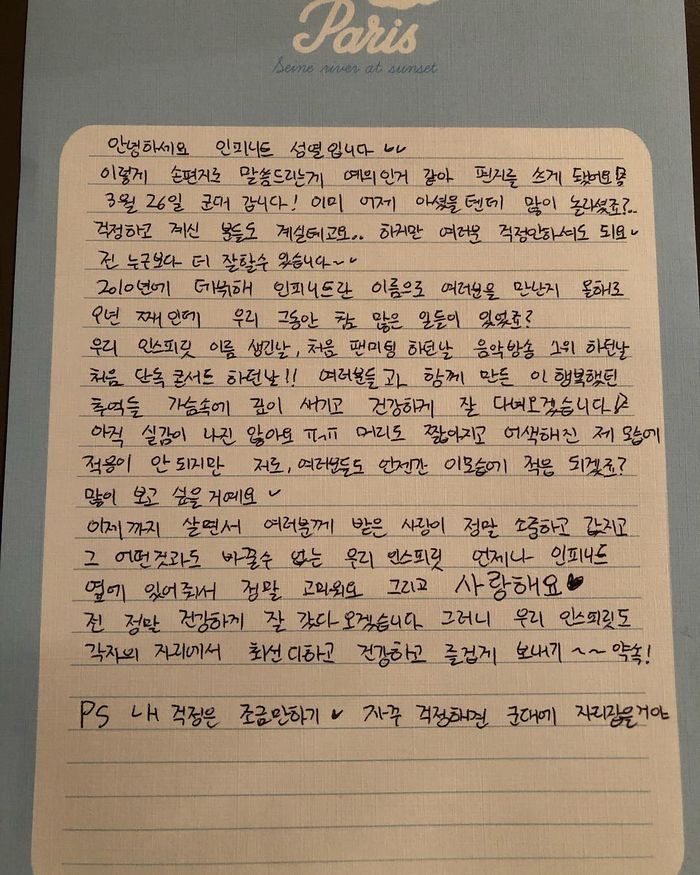 Paris
Seine river at sunset
안녕하세요 인피니트 성열입니다 ᴗᴗ
이렇게 손편지로 말씀드리는게 예의인거 같아 편지를 쓰게 됐어요
3월 26일 군대 갑니다! 이미 어제 아셨을텐데 많이 놀라셨죠?..
걱정하고 계신 분들도 계실테고요.. 하지만 여러분 걱정안하셔도 되요
전 누구보다 더 잘할수 있습니다~
2010년에 데뷔해 인피니트란 이름으로 여러분을 만난지 올해로
9년 째인데 우리 그동안 참 많은 일들이 있었죠?
우리 인스피릿 이름 생긴날, 처음 팬미팅 하던날 음악방송 1위 하던날
처음 단독 콘서트 하던날!! 여러분들과 함께 만든 이 행복했던
추억들 가슴속에 깊이 새기고 건강하게 잘 다녀오겠습니다
아직 실감이 나진 않아요 ㅠㅠ 머리도 짧아지고 어색해진 제 모습에
적응이 안 되지만 저도, 여러분들도 언젠간 이모습에 적응 되겠죠?
많이 보고 싶을거예요
이제까지 살면서 여러분께 받은 사랑이 정말 소중하고 값지고
그 어떤것과도 바꿀수 없는 우리 인스피릿 언제나 인피니트
옆에 있어줘서 정말 고마워요 그리고 사랑해요♥
전 정말 건강하게 잘 갔다 오겠습니다 그러니 우리 인스피릿도
각자의 자리에서 최선 다하고 건강하고 즐겁게 보내기 ~~ 약속!
PS 내 걱정은 조금만하기 자꾸 걱정하면 군대에 자리잡을거야